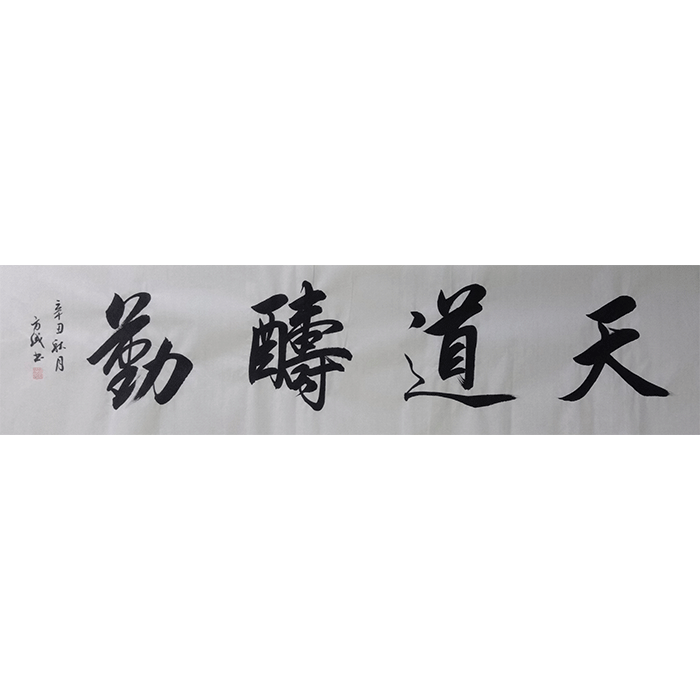 天道醻勤
辛丑秋月
方斌书